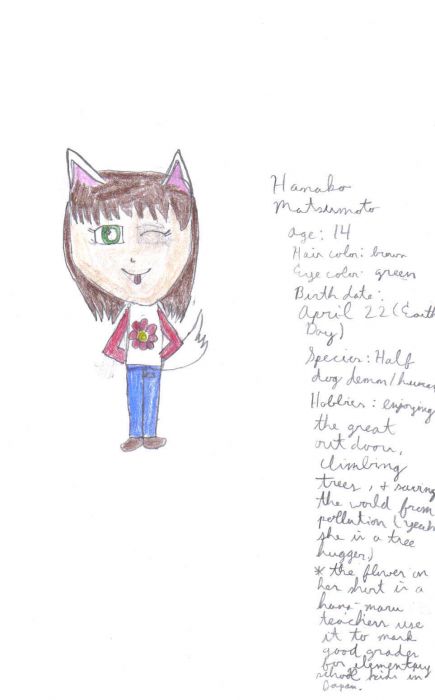 Hanako
Matsumoto
age: 14
Hair color: brown
Eye color: green
Birth date:
April 22 (Earth
Day)
Species: Half
dog demon/human
Hobbies: enjoying
the great
outdoors,
climbing
trees, + saving
the world from
pollution (yeah
she is a tree
hugger)
* the flower on
her shirt is a
hana-maru
teachers use
it to mark
good grades
for elementary
school kids in
Japan.